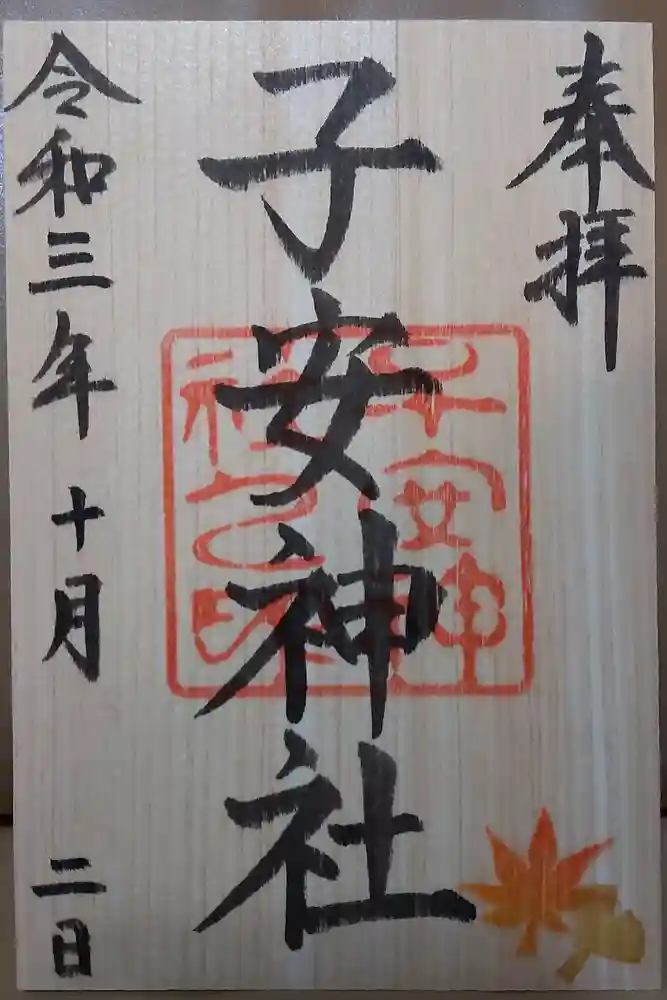 奉拝
子安神社
子安神
社之印
令和三年 十月 二日